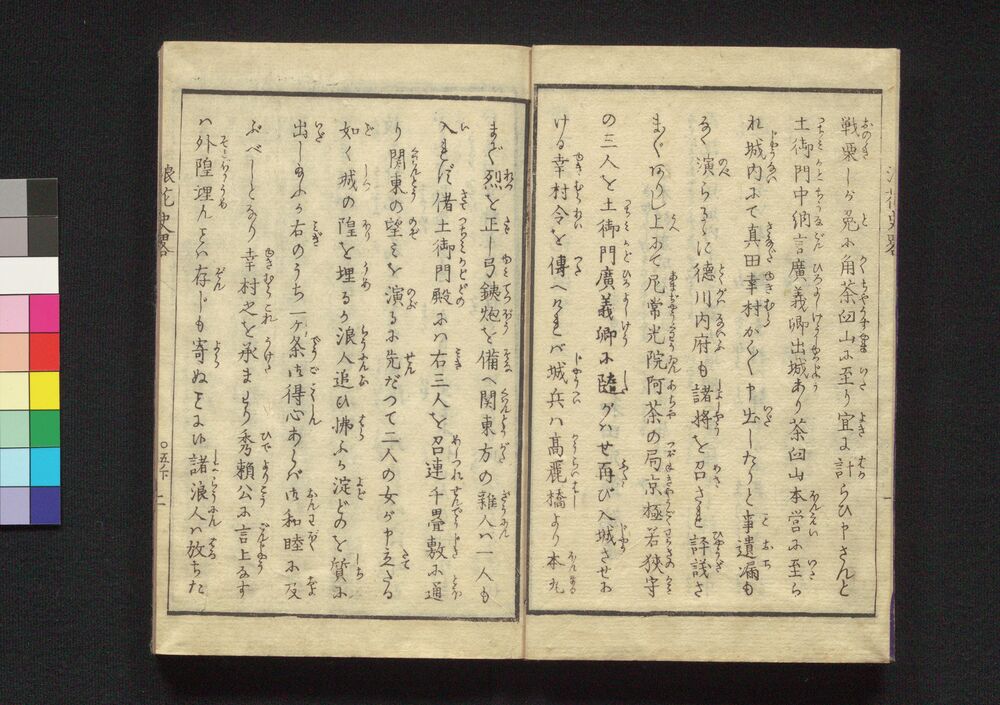 戦栗しが兎に角茶臼山に至り宜に計らひ申さんと
土御門中納言廣義卿出城あり茶臼山本営に至ら
れ城内にて真田幸村がかく申出したりと事遺漏も
なく演らるゝに徳川内府も諸将を召され評議さ
まぐありし上にて尼常光院阿茶の局京極若狭守
の三人を土御門廣義卿に隨がハせ再び入城させに
ける幸村令を傳へけれバ城兵ハ高麗橋より本丸
まで烈を正し弓銕炮を備へ関東方の雑人ハ一人も
入れず偖土御門殿にハ右三人を召連千疊敷に通
り関東の望ミを演るに先だつて二人の女が申立たる
如く城の隍を埋るか浪人追ひ拂ふか淀どのを質に
出し給ふか右のうち一ヶ条御得心あらバ御和睦に及
ぶべしとなり幸村之を承まわり秀頼公に言上なす
ハ外隍埋んとハ存じも寄ぬことに候諸浪人ハ放ちた
浪花史畧
〇五下
二